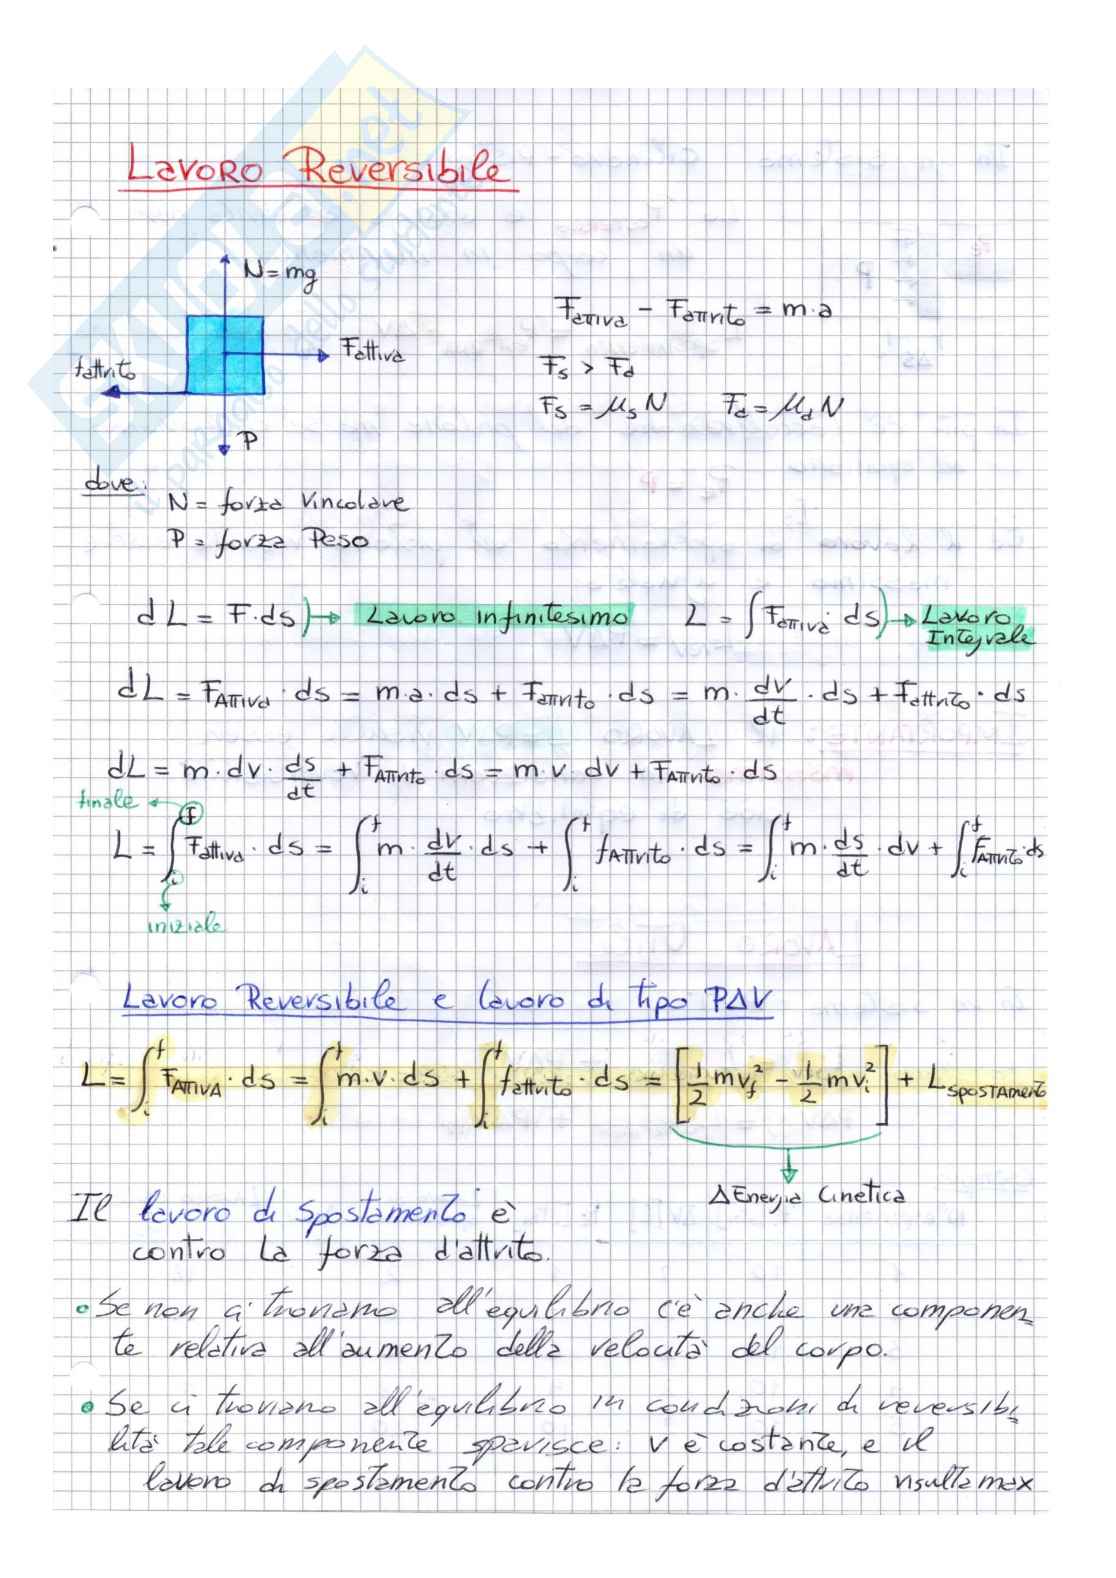 Lavoro Reversibile
N = mg
Fattiva
fattrito
P
Fattiva - Fattrito = m·a
Fs > Fd
Fs = μs N Fd = μd N
dove:
N = forza Vincolare
P = forza Peso
dL = F·ds → Lavoro infinitesimo L = ∫ Fattiva · ds → Lavoro Integrale
dL = FAttiva · ds = m·a·ds + Fattrito · ds = m · dv/dt · ds + Fattrito · ds
dL = m·dv· ds/dt + FAttrito · ds = m·v·dv + FAttrito · ds
finale
L = ∫_i^F Fattiva · ds = ∫_i^f m · dv/dt · ds + ∫_i^f fAttrito · ds = ∫_i^f m · ds/dt · dv + ∫_i^f FAttrito · ds
iniziale
Lavoro Reversibile e lavoro di tipo PΔV
L = ∫_i^f FAttiva · ds = ∫_i^f m·v·ds + ∫_i^f fattrito · ds = [1/2 mv_f^2 - 1/2 mv_i^2] + Lspostamento
Δ Energia Cinetica
Il lavoro di spostamento è
contro la forza d'attrito.
• Se non ci troviamo all'equilibrio c'è anche una componen
te relativa all'aumento della velocità del corpo.
• Se ci troviamo all'equilibrio in condizioni di reversibi
lità tale componente sparisce: v è costante, e il
lavoro di spostamento contro la forza d'attrito risulta max